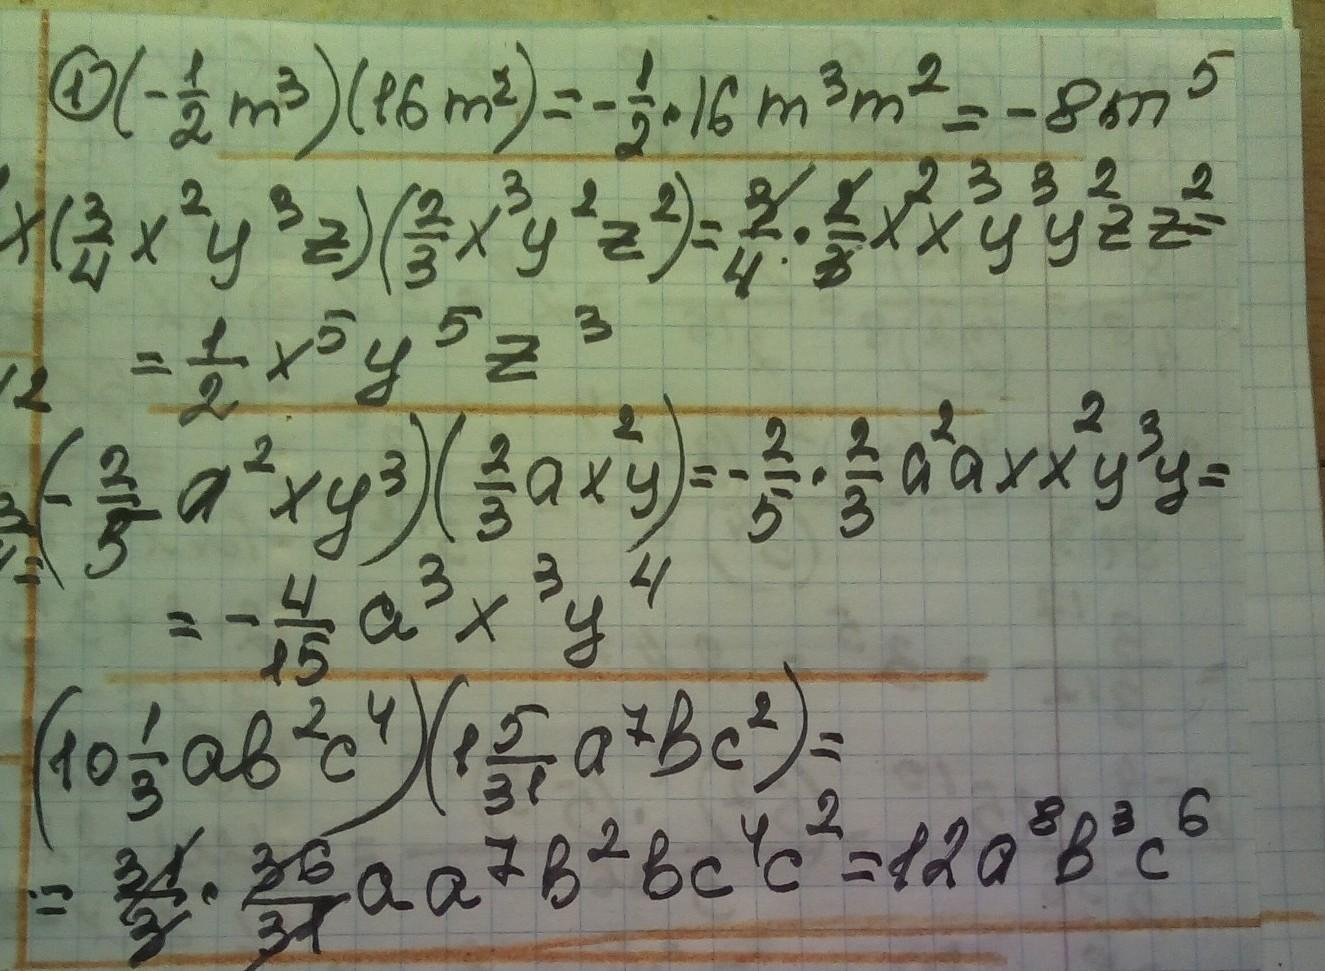 ① (-1/2 m³)(16m²) = -1/2 · 16 m³m² = -8m⁵
(3/4 x²y³z)(2/3 x³y²z²) = 3/4 · 2/3 x²x³y³y²zz² =
= 1/2 x⁵y⁵z³
(-2/5 a²xy³)(2/3 ax²y) = -2/5 · 2/3 a²axx²y³y =
= -4/15 a³x³y⁴
(10 1/3 ab²c⁴)(1 5/31 a⁷bc²) =
= 31/3 · 36/31 aa⁷b²bc⁴c² = 12a⁸b³c⁶